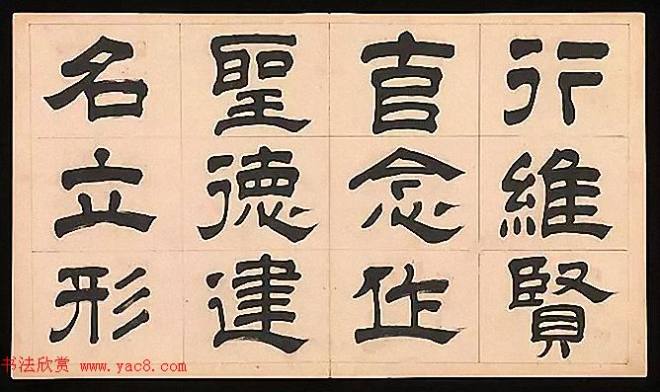 行維賢
克念作
聖德建
名立形
书法欣赏 www.yac8.com